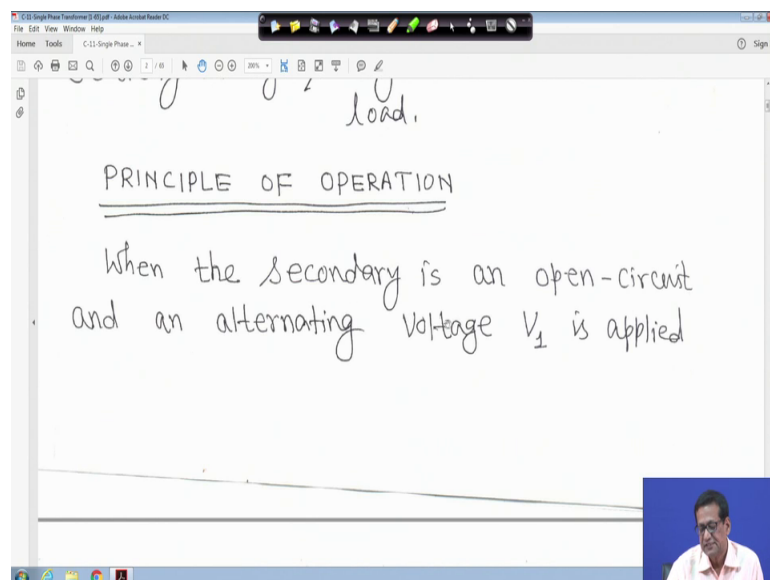 C-11-Single Phase Transformer [1-63].pdf - Adobe Acrobat Reader DC
File Edit View Window Help
Home Tools C-11-Single Phase ... ×
Sign
2 / 63 200%
load.
PRINCIPLE OF OPERATION
When the secondary is an open-circuit
and an alternating voltage V1 is applied